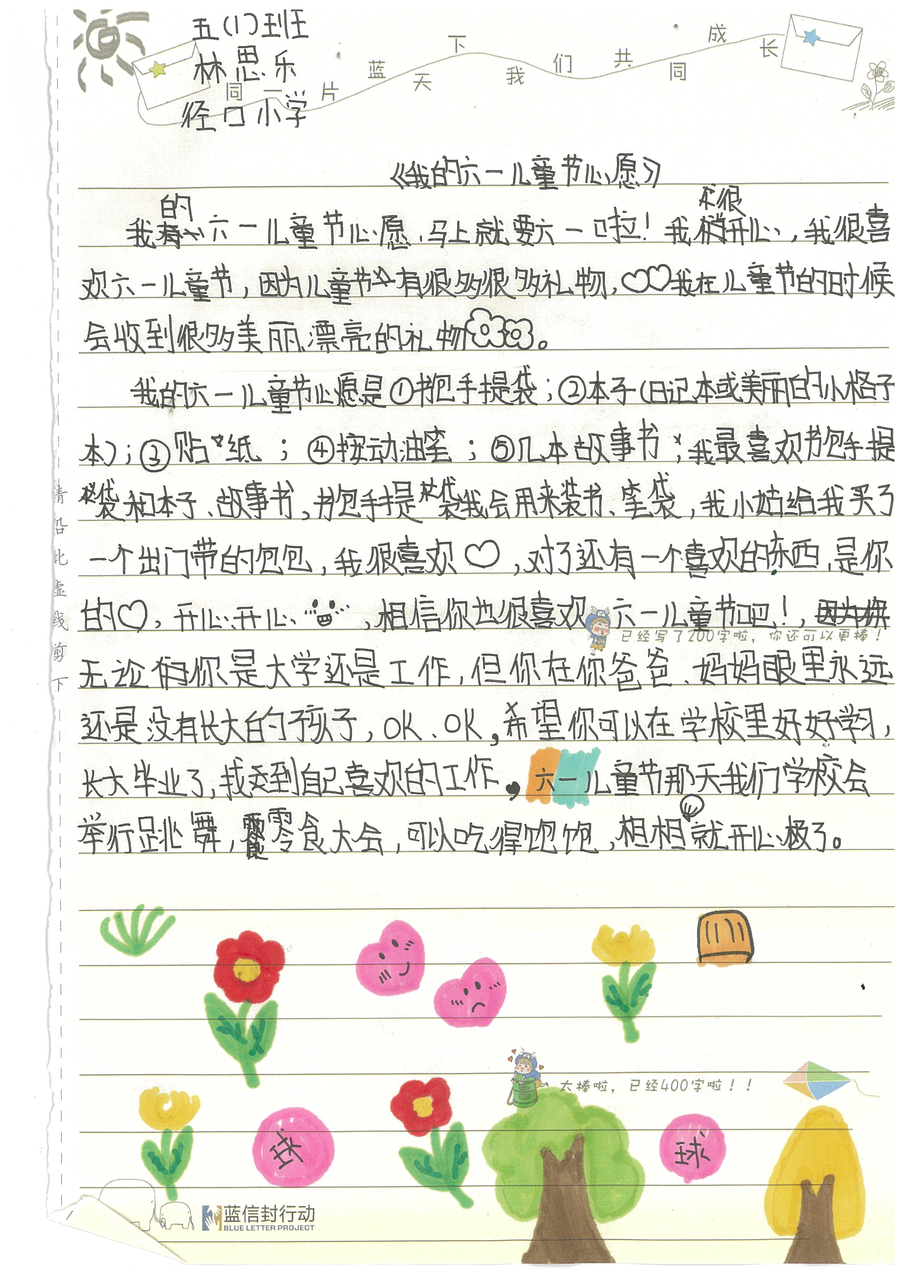 五(1)班
林思乐
径口小学
同一片蓝天下我们共同成长
《我的六一儿童节心愿》
我的六一儿童节心愿，马上就要六一啦！我很开心，我很喜
欢六一儿童节，因为儿童节有很多很多礼物，我在儿童节的时候
会收到很多美丽漂亮的礼物。
我的六一儿童节心愿是①书包手提袋；②本子（日记本或美丽的小格子
本）；③贴纸；④按动油笔；⑤几本故事书；我最喜欢书包手提
袋和本子、故事书，书包手提袋我会用来装书、笔袋，我小姑给我买了
一个出门带的包包，我很喜欢♡，对了还有一个喜欢的东西，是你
的♡，开心开心，相信你也很喜欢六一儿童节吧！，
已经写了200字啦，你还可以更棒！
无论你是大学还是工作，但你在你爸爸、妈妈眼里永远
还是没有长大的孩子，OK、OK，希望你可以在学校里好好学习，
长大毕业了，找到自己喜欢的工作，六一儿童节那天我们学校会
举行跳舞，零食大会，可以吃得饱饱，想想就开心极了。
请沿此虚线剪下
太棒啦，已经400字啦！！
球
球
蓝信封行动
BLUE LETTER PROJECT